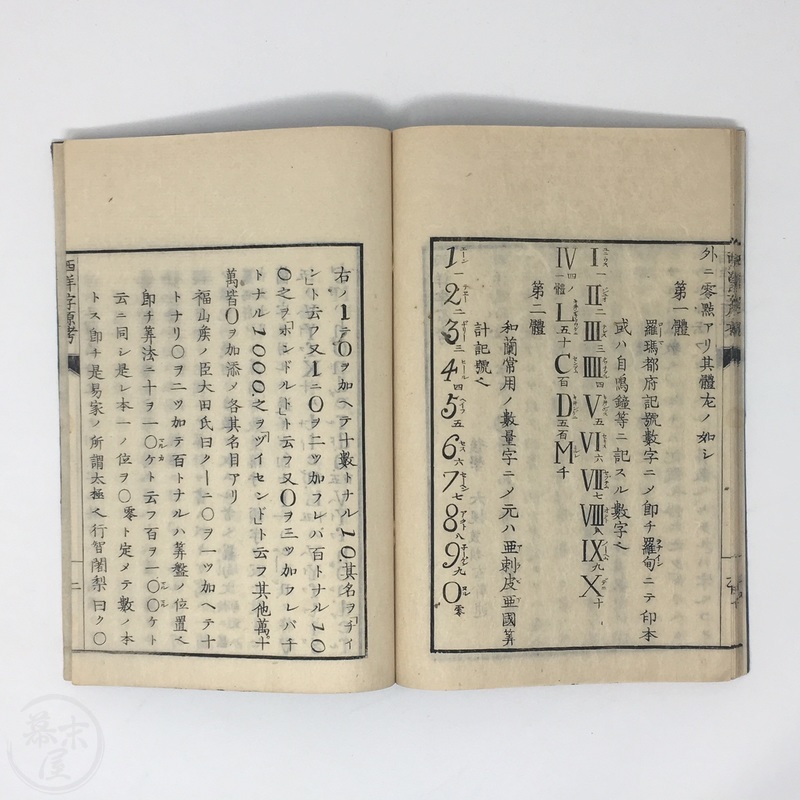 外ニ零點アリ其體左ノ如シ
第一體
羅瑪都府記號數字ニメ即チ羅甸ニテ印本
或ハ自鳴鐘等ニ記スル數字也
I一 II二 III三 IIII四 V五 VI六 VII七 VIII八 IX九 X十
IV四ノ一體 L五十 C百 D五百 M千
第二體
和蘭常用ノ數量字ニメ元ハ亜剌皮亜國筭
計記號也
1一 2二 3三 4四 5五 6六 7七 8八 9九 0零
右ノ1ニ0ヲ加ヘテ十數トナル10.其名ヲ「チィ
ント云フ又1ニ0ヲ二ツ加フレバ百トナル10
0之ヲ「ホンドルト」ト云フ又0ヲ三ツ加フレバ千
トナル1000.之ヲ「ヅイセンド」ト云フ其他萬十
萬皆0ヲ加添メ各其名目アリ
福山矦ノ臣太田氏曰ク一ニ〇ヲ一ツ加ヘテ十
トナリ〇ヲ二ツ加テ百トナルハ筭盤ノ位置也
即チ筭法ニ十ヲ一〇ケト云フ百ヲ一〇〇ケト
云ニ同シ是レ本一ノ位ヲ〇零ト定メテ數ノ本
トス即チ是易家ノ所謂太極也行智闍梨曰ク〇
西洋字原考
二
幕末屋